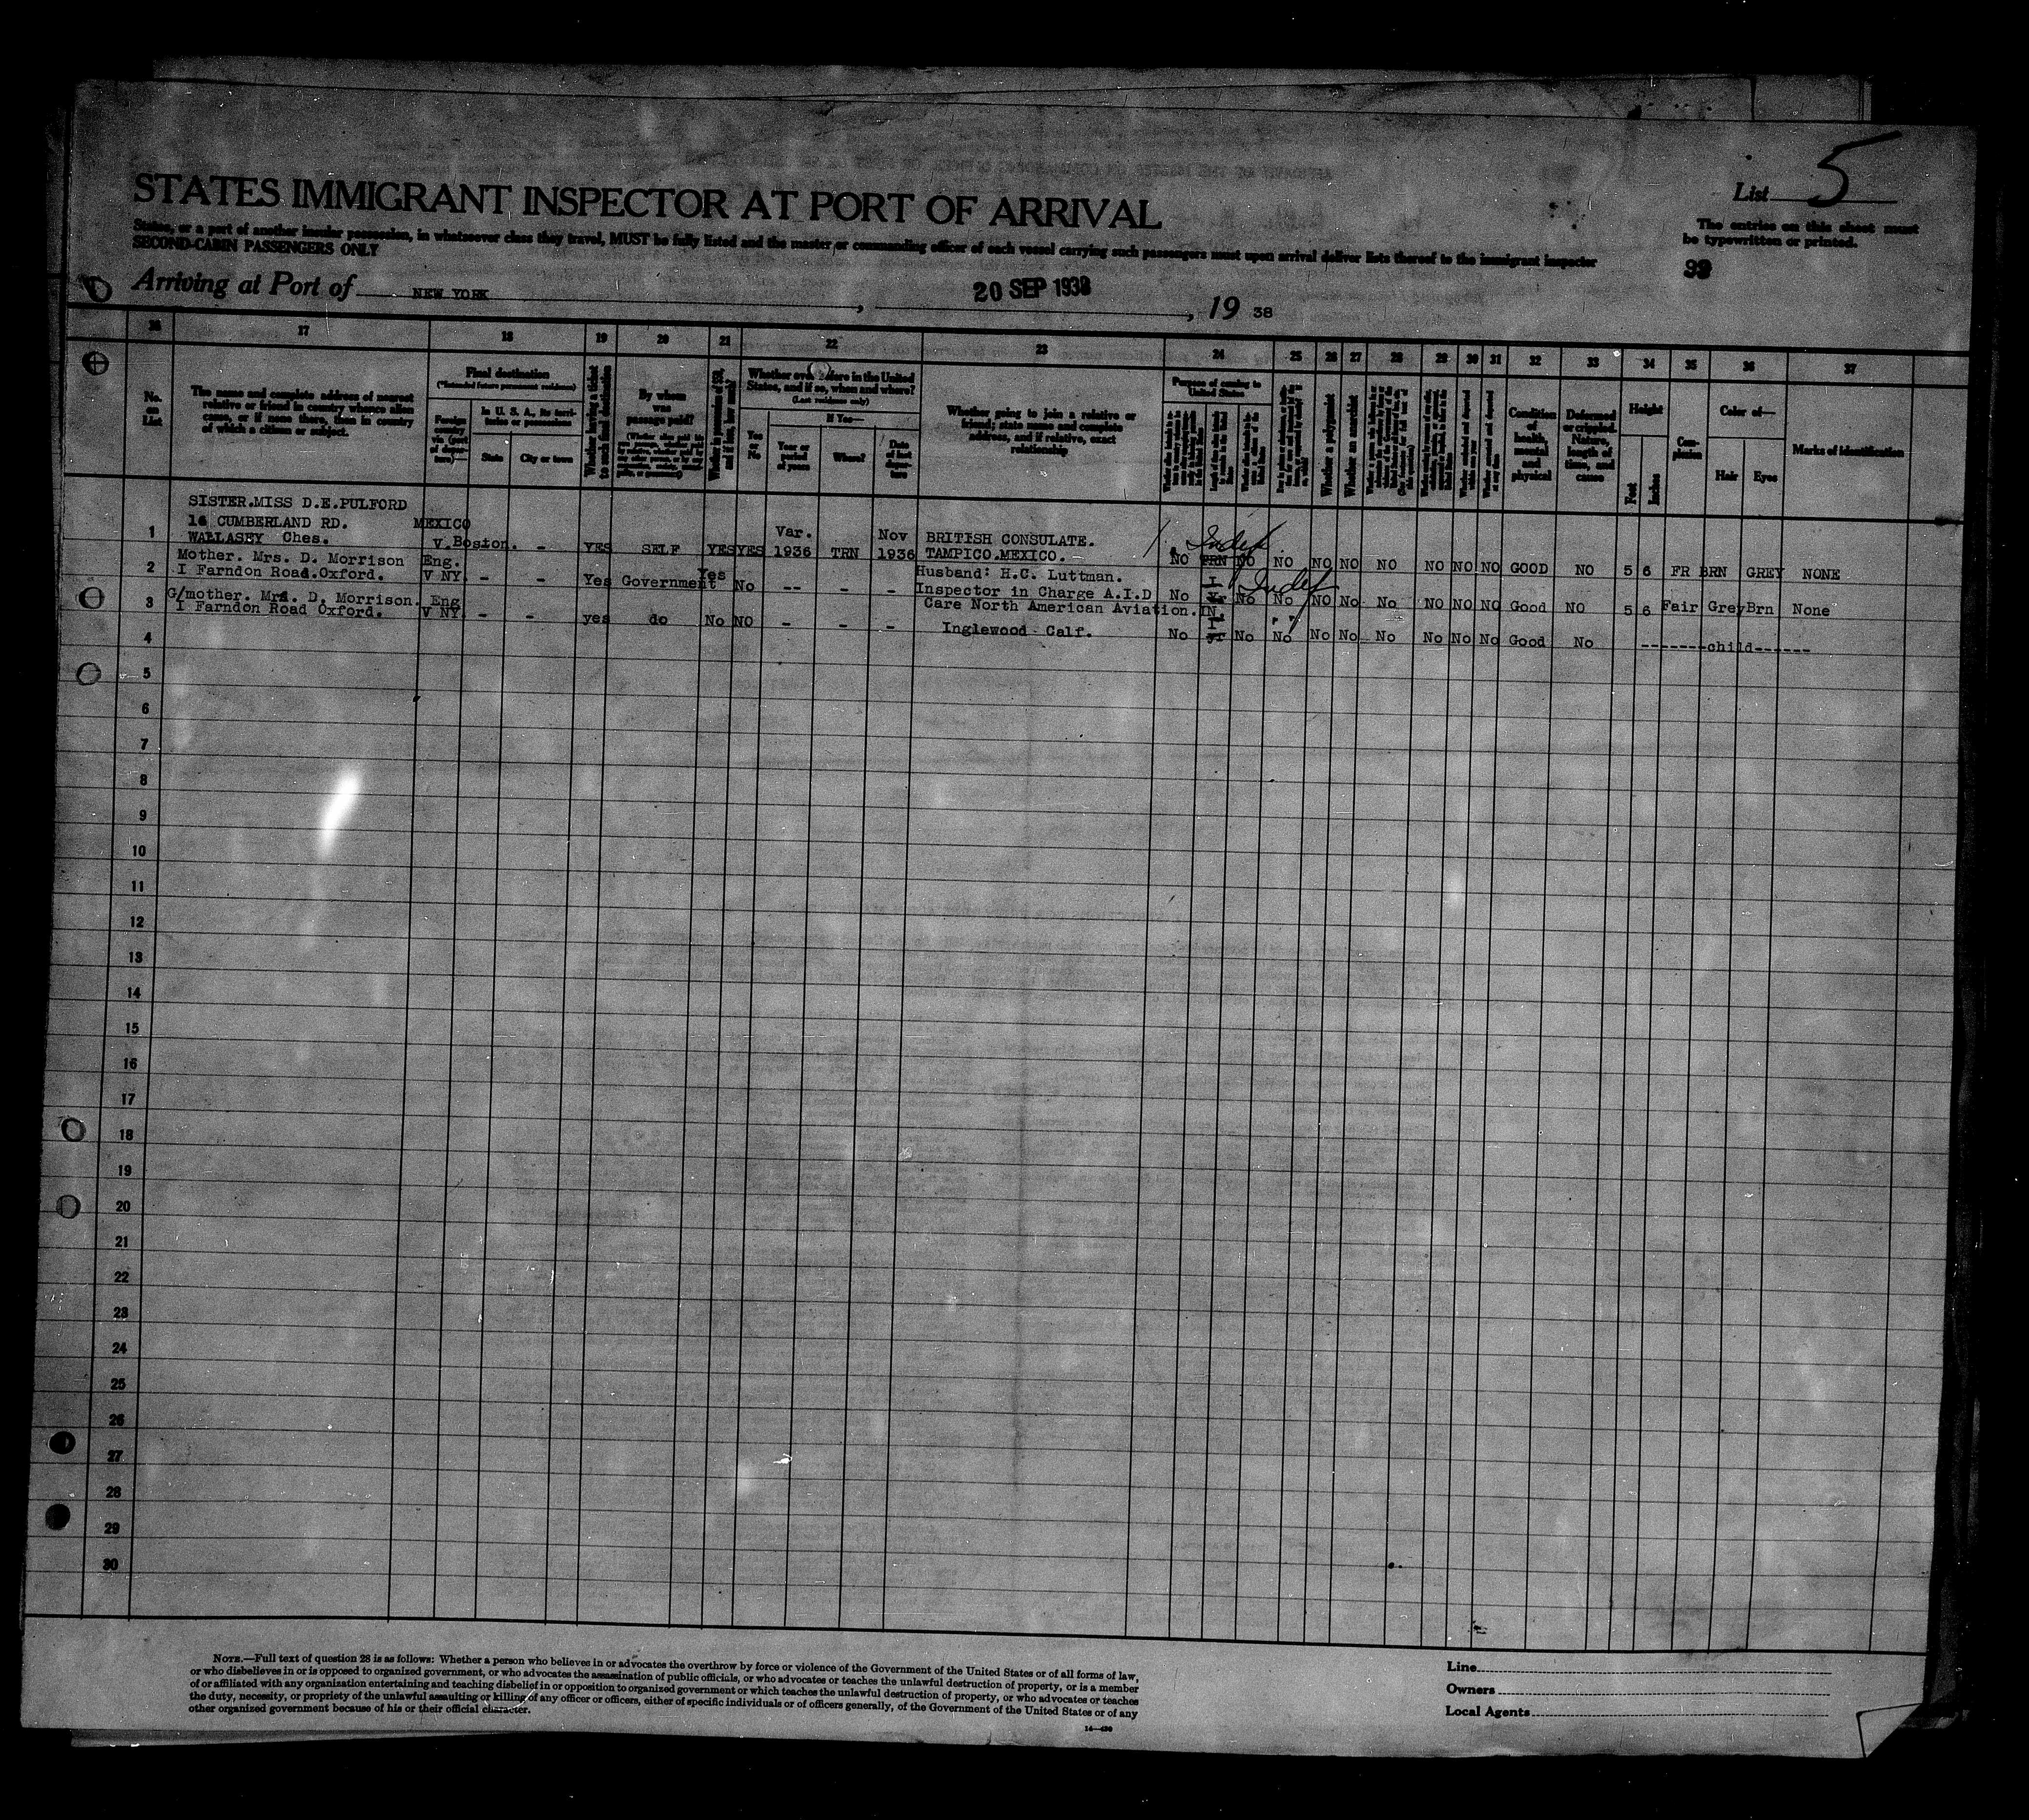 List 5
STATES IMMIGRANT INSPECTOR AT PORT OF ARRIVAL
The entries on this sheet must
be typewritten or printed.
States, or a port of another insular possession, in whatsoever class they travel, MUST be fully listed and the master or commanding officer of each vessel carrying such passengers must upon arrival deliver lists thereof to the immigrant inspector
SECOND-CABIN PASSENGERS ONLY
Arriving at Port of NEW YORK, 20 SEP 1938, 19 38
17 18 19 20 21 22 23 24 25 26 27 28 29 30 31 32 33 34 35 36 37
No.
on
List
The name and complete address of nearest
relative or friend in country whence alien
came, or if none there, then in country
of which a citizen or subject.
Final destination
(*Intended future permanent residence)
Foreign
country
via (port
of depar-
ture)—
In U. S. A., its terri-
tories or possessions
State
City or town
Whether having a ticket
to such final destination
By whom
was
passage paid?
Whether ever before in the United
States, and if so, when and where?
(Last residence only)
Yes
or
No
If Yes—
Year or
period
of years
Where?
Whether going to join a relative or
friend; state name and complete
address, and if relative, exact
relationship
Purpose of coming to
United States
Whether a polygamist
Whether an anarchist
Condition
of
health,
mental
and
physical
Deformed
or crippled.
Nature,
length of
time, and
cause
Height
Feet
Inches
Com-
plexion
Color of—
Hair
Eyes
Marks of identification
SISTER.MISS D.E.PULFORD
16 CUMBERLAND RD. MEXICO Var. Nov BRITISH CONSULATE. Indef
1 WALLASEY Ches. V.Boston. - YES SELF YES YES 1936 TRN 1936 TAMPICO.MEXICO. NO TRN NO NO NO NO NO NO NO NO GOOD NO 5 6 FR BRN GREY NONE
Mother. Mrs. D. Morrison Eng. Yes Husband: H.C. Luttman. Indef
2 I Farndon Road.Oxford. V NY. - - Yes Government No -- - - Inspector in Charge A.I.D No I Yr No No NO No No NO NO NO Good NO 5 6 Fair Grey Brn None
G/mother. Mrs. D. Morrison. Eng Care North American Aviation.IN.
3 I Farndon Road Oxford. V NY. - - yes do No NO - - - Inglewood Calf. No I yr No No No No No No No No Good No -------child------
4
5
6
7
8
9
10
11
12
13
14
15
16
17
18
19
20
21
22
23
24
25
26
27
28
29
30
NOTE.—Full text of question 28 is as follows: Whether a person who believes in or advocates the overthrow by force or violence of the Government of the United States or of all forms of law,
or who disbelieves in or is opposed to organized government, or who advocates the assassination of public officials, or who advocates or teaches the unlawful destruction of property, or is a member
of or affiliated with any organization entertaining and teaching disbelief in or opposition to organized government or which teaches the unlawful destruction of property, or who advocates or teaches
the duty, necessity, or propriety of the unlawful assaulting or killing of any officer or officers, either of specific individuals or of officers generally, of the Government of the United States or of any
other organized government because of his or their official character.
Line
Owners
Local Agents